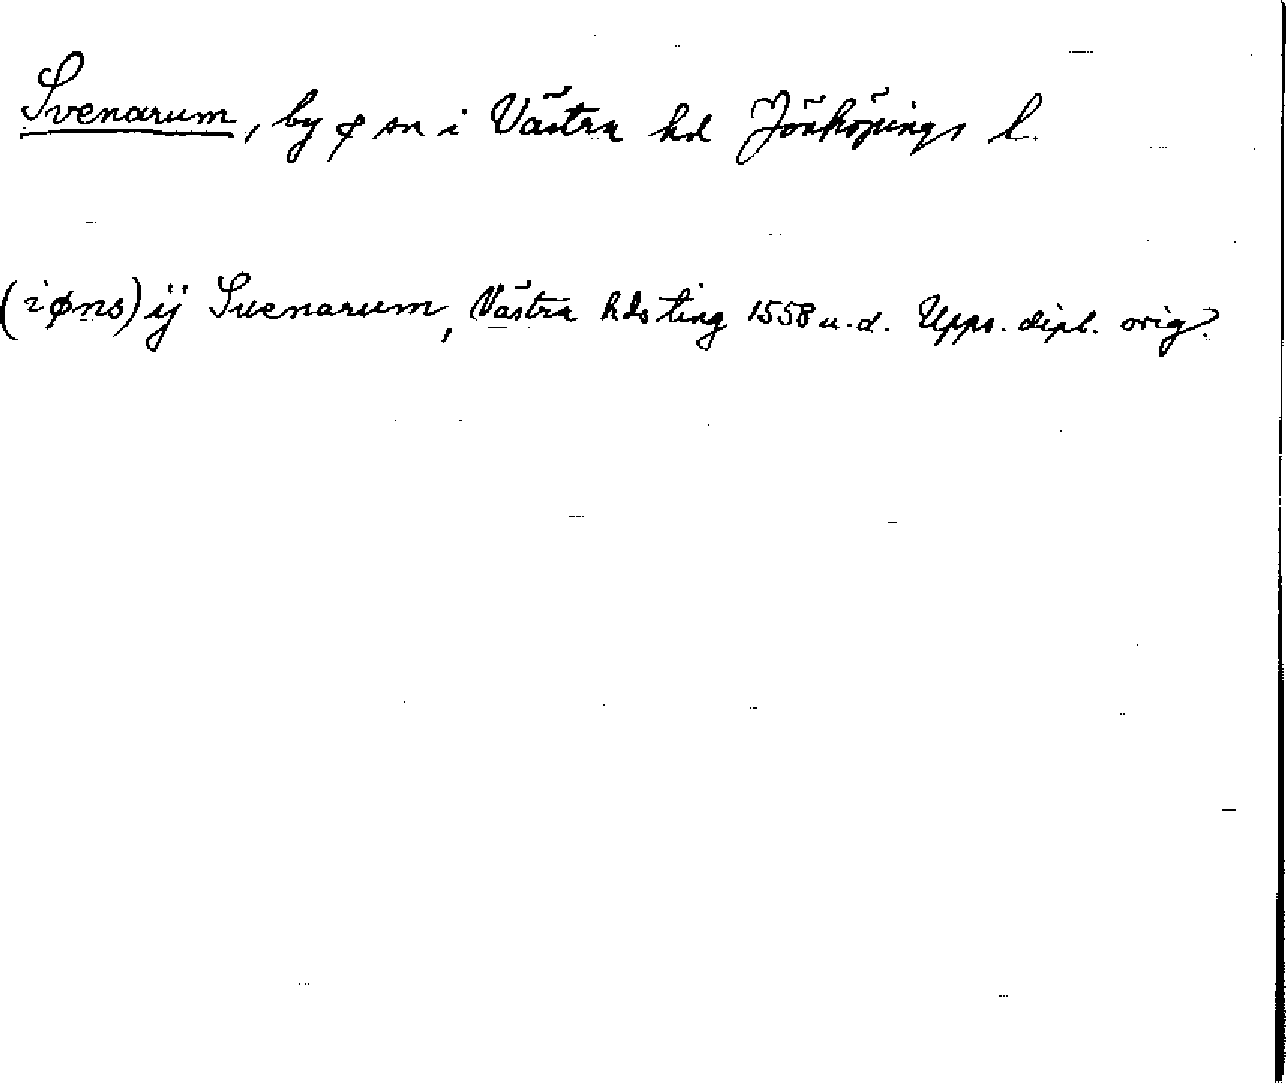 Svenarum, by & sn i Västra hd Jönköpings l.
(iøns) ij Suenarum, Västra hds ting 1558 u.d. Upps. dipl. orig.